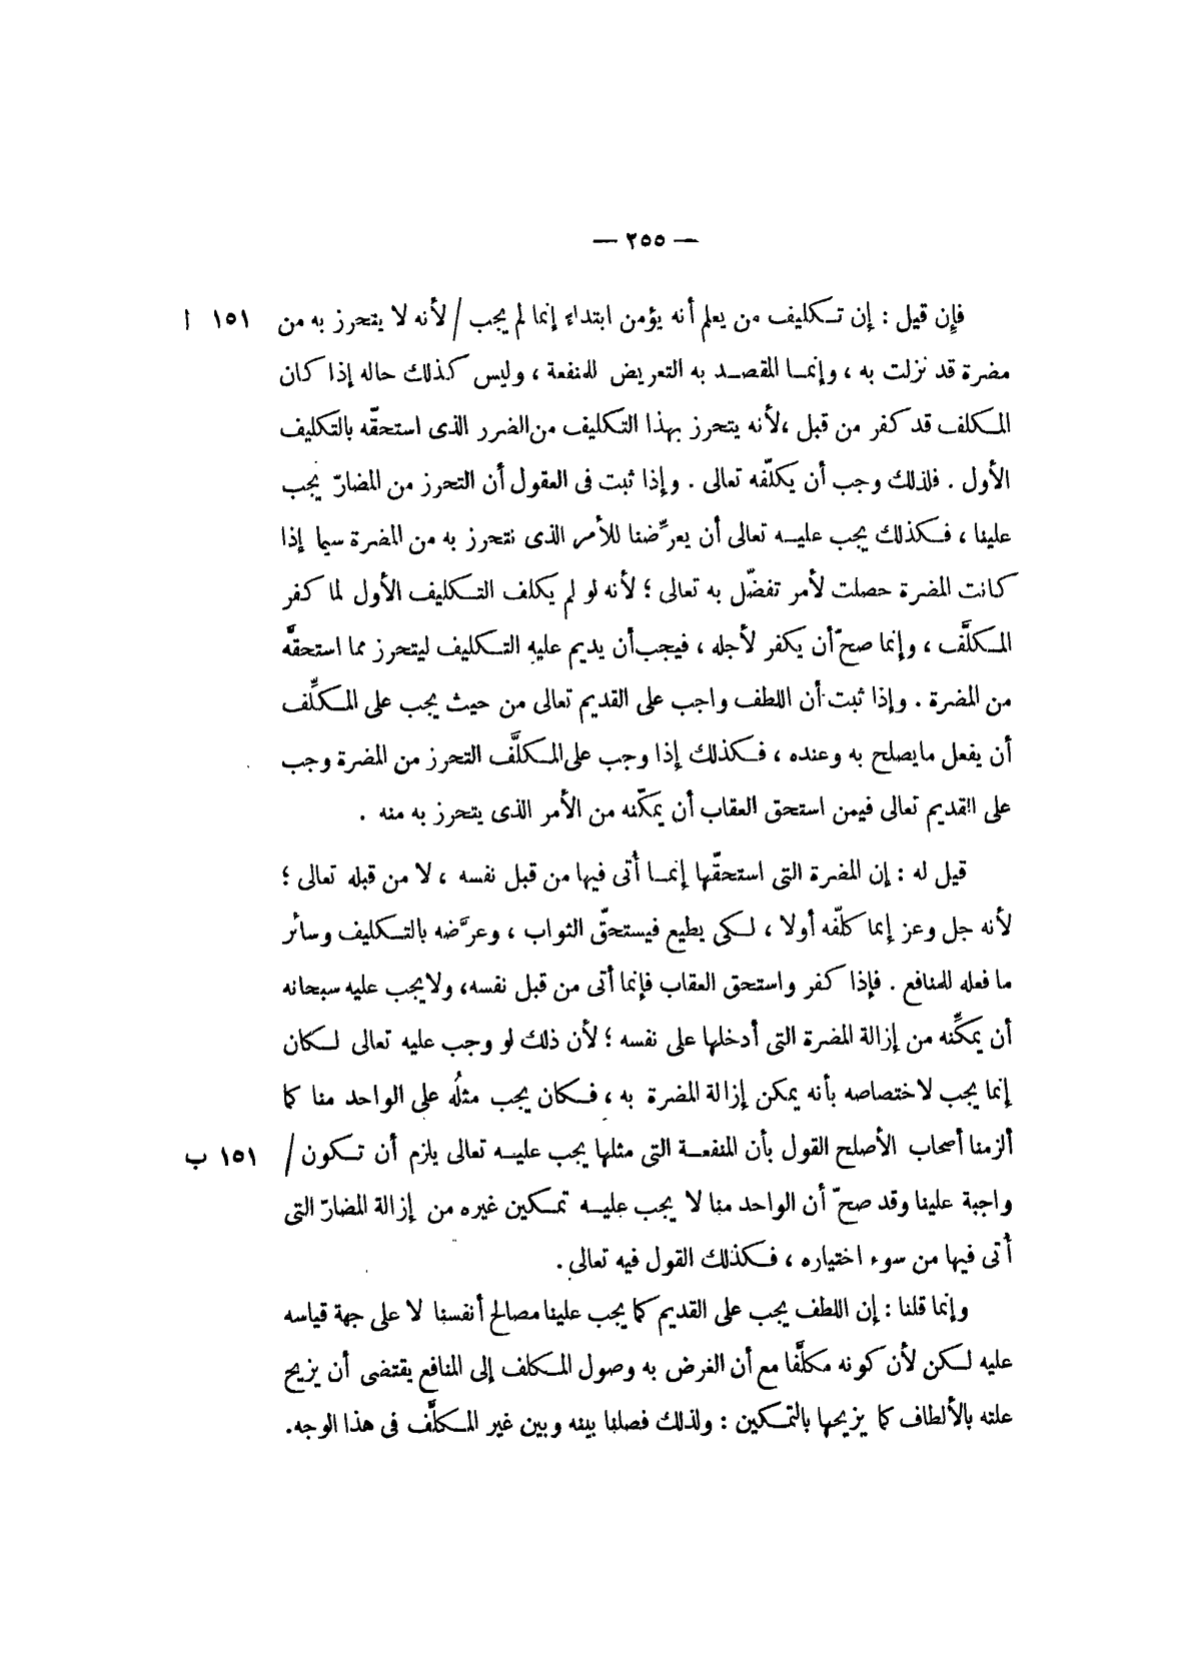 — ٢٥٥ —
فإن قيل : إن تكليف من يعلم أنه يؤمن ابتداء إنما لم يجب / لأنه لا يتحرز به من ١٥١ ا
مضرة قد نزلت به ، وإنما المقصد به التعريض للمنفعة ، وليس كذلك حاله إذا كان
المكلف قد كفر من قبل ،لأنه يتحرز بهذا التكليف من الضرر الذى استحقّه بالتكليف
الأول . فلذلك وجب أن يكلّفه تعالى . وإذا ثبت فى العقول أن التحرز من المضارّ يجب
علينا ، فكذلك يجب عليه تعالى أن يعرِّضنا للأمر الذى نتحرز به من المضرة سيما إذا
كانت المضرة حصلت لأمر تفضّل به تعالى ؛ لأنه لو لم يكلف التكليف الأول لما كفر
المكلَّف ، وإنما صحّ أن يكفر لأجله ، فيجب أن يديم عليه التكليف ليتحرز مما استحقَّه
من المضرة . وإذا ثبت أن اللطف واجب على القديم تعالى من حيث يجب على المكلِّف
أن يفعل ما يصلح به وعنده ، فكذلك إذا وجب على المكلَّف التحرز من المضرة وجب
على القديم تعالى فيمن استحق العقاب أن يمكّنه من الأمر الذى يتحرز به منه .
قيل له : إن المضرة التى استحقّها إنما أُتى فيها من قبل نفسه ، لا من قبله تعالى ؛
لأنه جل وعز إنما كلّفه أولا ، لكى يطيع فيستحقّ الثواب ، وعرَّضه بالتكليف وسائر
ما فعله للمنافع . فإذا كفر واستحق العقاب فإنما أتى من قبل نفسه، ولا يجب عليه سبحانه
أن يمكِّنه من إزالة المضرة التى أدخلها على نفسه ؛ لأن ذلك لو وجب عليه تعالى لكان
إنما يجب لاختصاصه بأنه يمكن إزالة المضرة به ، فكان يجب مثلُه على الواحد منا كما
ألزمنا أصحاب الأصلح القول بأن المنفعة التى مثلها يجب عليه تعالى يلزم أن تكون / ١٥١ ب
واجبة علينا وقد صحّ أن الواحد منا لا يجب عليه تمكين غيره من إزالة المضارّ التى
أُتى فيها من سوء اختياره ، فكذلك القول فيه تعالى .
وإنما قلنا : إن اللطف يجب على القديم كما يجب علينا مصالح أنفسنا لا على جهة قياسه
عليه لكن لأن كونه مكلَّفا مع أن الغرض به وصول المكلف إلى المنافع يقتضى أن يزيح
علته بالألطاف كما يزيحها بالتمكين : ولذلك فصلنا بينه وبين غير المكلَّف فى هذا الوجه.